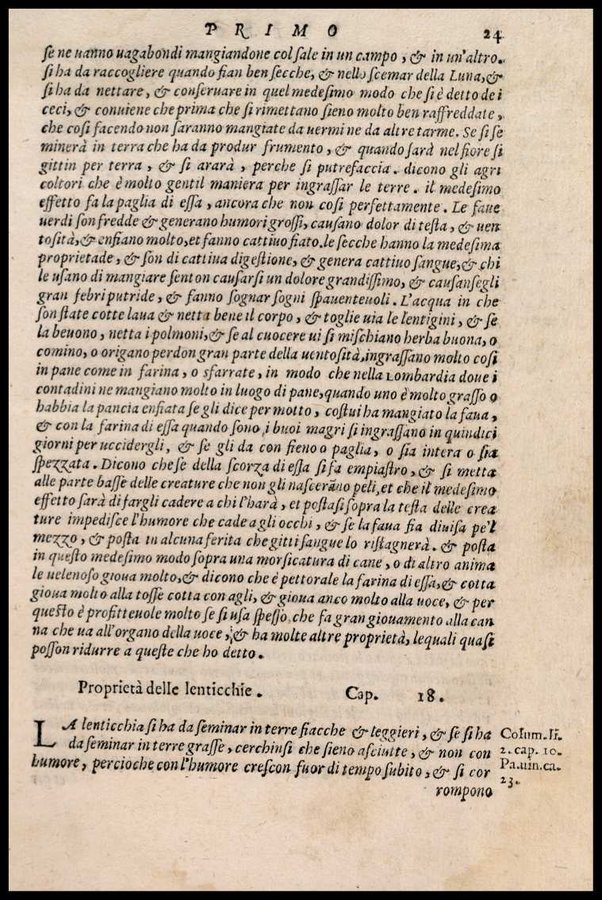 PRIMO 24
se ne uanno uagabondi mangiandone col sale in un campo, & in un'altro.
si ha da raccogliere quando sian ben secche, & nello scemar della Luna, &
si ha da nettare, & conseruare in quel medesimo modo che si è detto de i
ceci, & conuiene che prima che si rimettano sieno molto ben raffreddate,
che cosi facendo non saranno mangiate da uermi ne da altre tarme. Se si se
minerà in terra che ha da produr frumento, & quando sarà nel fiore si
gittin per terra, & si ararà, perche si putrefaccia. dicono gli agri
coltori che è molto gentil maniera per ingrassar le terre. il medesimo
effetto fa la paglia di essa, ancora che non cosi perfettamente. Le faue
uerdi son fredde & generano humori grossi, causano dolor di testa, & uen
tosità, & enfiano molto, et fanno cattiuo fiato. le secche hanno la medesima
proprietade, & son di cattiua digestione, & genera cattiuo sangue, & chi
le usano di mangiare senton causarsi un dolore grandissimo, & causansegli
gran febri putride, & fanno sognar sogni spauenteuoli. L'acqua in che
son state cotte laua & netta bene il corpo, & toglie uia le lentigini, & se
la beuono, netta i polmoni, & se al cuocere ui si mischiano herba buona, o
comino, o origano perdon gran parte della uentosità, ingrassano molto cosi
in pane come in farina, o sfarrate, in modo che nella Lombardia doue i
contadini ne mangiano molto in luogo di pane, quando uno è molto grasso o
habbia la pancia enfiata se gli dice per motto, costui ha mangiato la faua,
& con la farina di essa quando sono i buoi magri si ingrassano in quindici
giorni per uccidergli, & se gli da con fieno o paglia, o sia intera o sia
spezzata. Dicono che se della scorza di essa si fa empiastro, & si metta
alle parte basse delle creature che non gli nasceranno peli, et che il medesimo
effetto sarà di fargli cadere a chi l'harà, et postasi sopra la testa delle crea
ture impedisce l'humore che cade agli occhi, & se la faua sia diuisa pe'l
mezzo, & posta in alcuna ferita che gitti sangue lo ristagnerà. & posta
in questo medesimo modo sopra una morsicatura di cane, o di altro anima
le uelenoso gioua molto, & dicono che è pettorale la farina di essa, & cotta
gioua molto alla tosse cotta con agli, & gioua anco molto alla uoce, & per
questo è profitteuole molto se si usa spesso, che fa gran giouamento alla can
na che ua all'organo della uoce, & ha molte altre proprietà, lequali quasi
posson ridurre a queste che ho detto.
Proprietà delle lenticchie. Cap. 18.
LA lenticchia si ha da seminar in terre fiacche & leggieri, & se si ha
da seminar in terre grasse, cerchinsi che sieno asciutte, & non con
humore, percioche con l'humore crescon fuor di tempo subito, & si cor
rompono
Colum. li.
2. cap. 10.
Pa. uin. ca.
23.